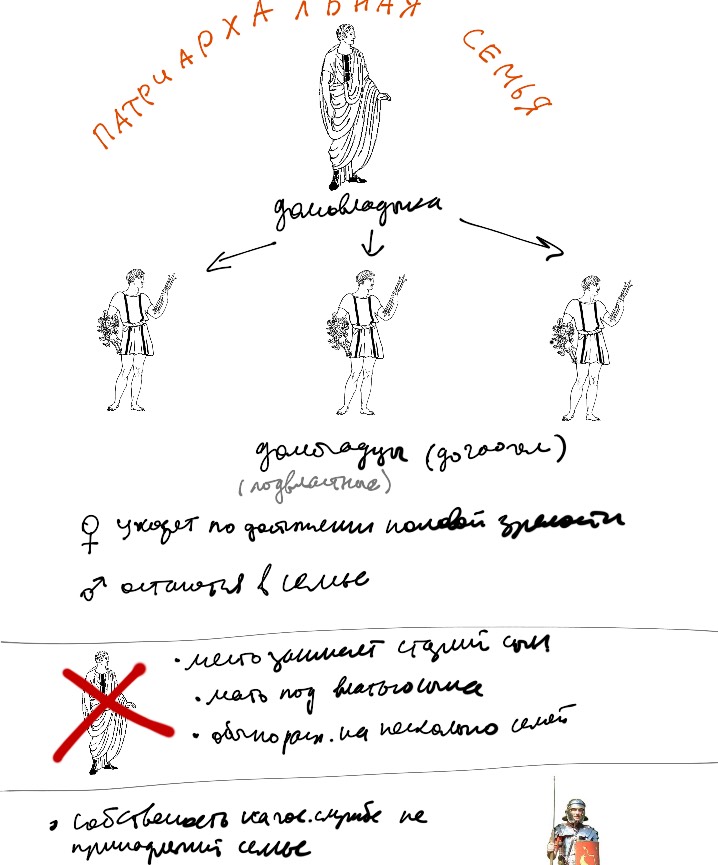 ПАТРИАРХАЛЬНАЯ СЕМЬЯ
домовладыка
домочадцы (
(подвластные)
♀ уходят по достижении половой зрелости
♂ остаются в семье
• место занимает старший сын
• мать под властью сына
• обычно расп. на несколько семей
собственность на гос. службе не
принадлежит семье